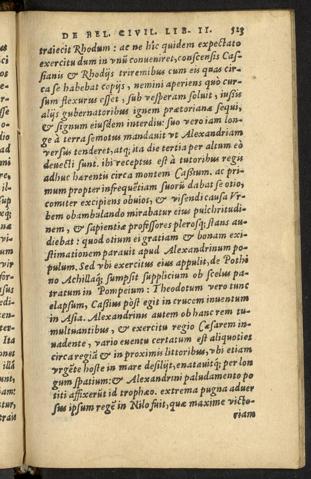 DE BEL. CIVIL. LIB. II. 523
traiecit Rhodum: ac ne hîc quidem expectato
exercitu dum in vnũ conueniret, conscensis Cas-
sianis & Rhodijs triremibus cum eis quas cir-
ca se habebat copijs, nemini aperiens quò cur-
sum flexurus esset, sub vesperam soluit, iussis
alijs gubernatoribus ignem prætorianæ sequi,
& signum eiusdem interdiu: suo vero iam lon-
ge à terra semotus mandauit vt Alexandriam
versus tenderet, atq; ita die tertia per altum eò
deuecti sunt. ibi receptus est à tutoribus regis
adhuc hærentis circa montem Casium. ac pri-
mum propter infrequẽtiam suorũ dabat se otio,
comiter excipiens obuios, & visendi causa Vr-
bem obambulando mirabatur eius pulchritudi-
nem, & sapientiæ professores plerosq; stans au-
diebat: quod otium ei gratiam & bonam exi-
stimationem parauit apud Alexandrinum po-
pulum. Sed vbi exercitus eius appulit, de Pothi
no Achillaq; sumpsit supplicium ob scelus pa-
tratum in Pompeium: Theodotum vero tunc
elapsum, Casius pòst egit in crucem inuentum
in Asia. Alexandrinis autem ob hanc rem tu-
multuantibus, & exercitu regio Cæsarem in-
uadente, vario euentu certatum est aliquoties
circa regiã & in proximis littoribus, vbi etiam
vrgẽte hoste in mare desilijt, enatauitq; per lon
gum spatium: & Alexandrini paludamento po
titi affixerũt id trophæo. extrema pugna aduer
sus ipsum regẽ in Nilo fuit, quæ maxime victo-
riam